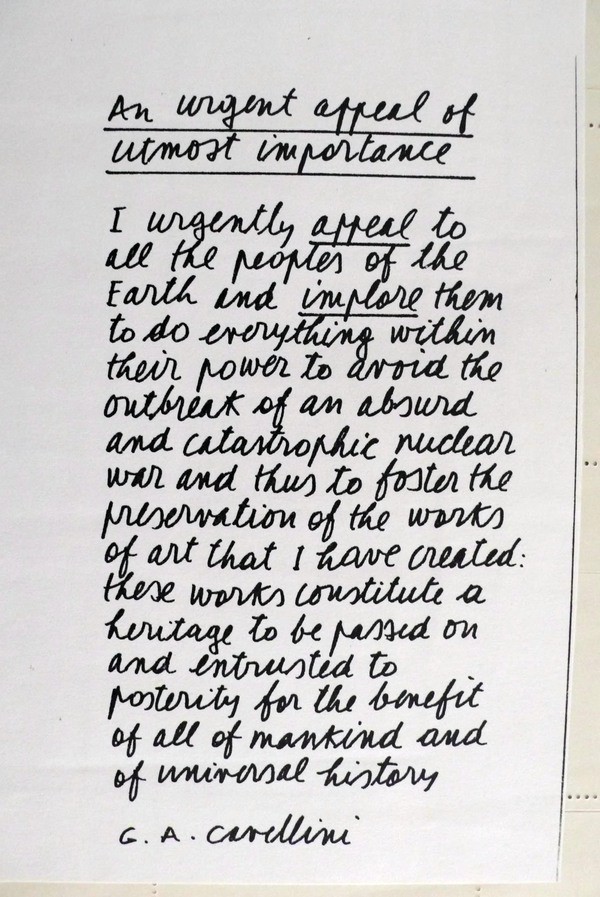 An urgent appeal of
utmost importance
I urgently appeal to
all the peoples of the
Earth and implore them
to do everything within
their power to avoid the
outbreak of an absurd
and catastrophic nuclear
war and thus to foster the
preservation of the works
of art that I have created:
these works constitute a
heritage to be passed on
and entrusted to
posterity for the benefit
of all of mankind and
of universal history
G. A. Cavellini